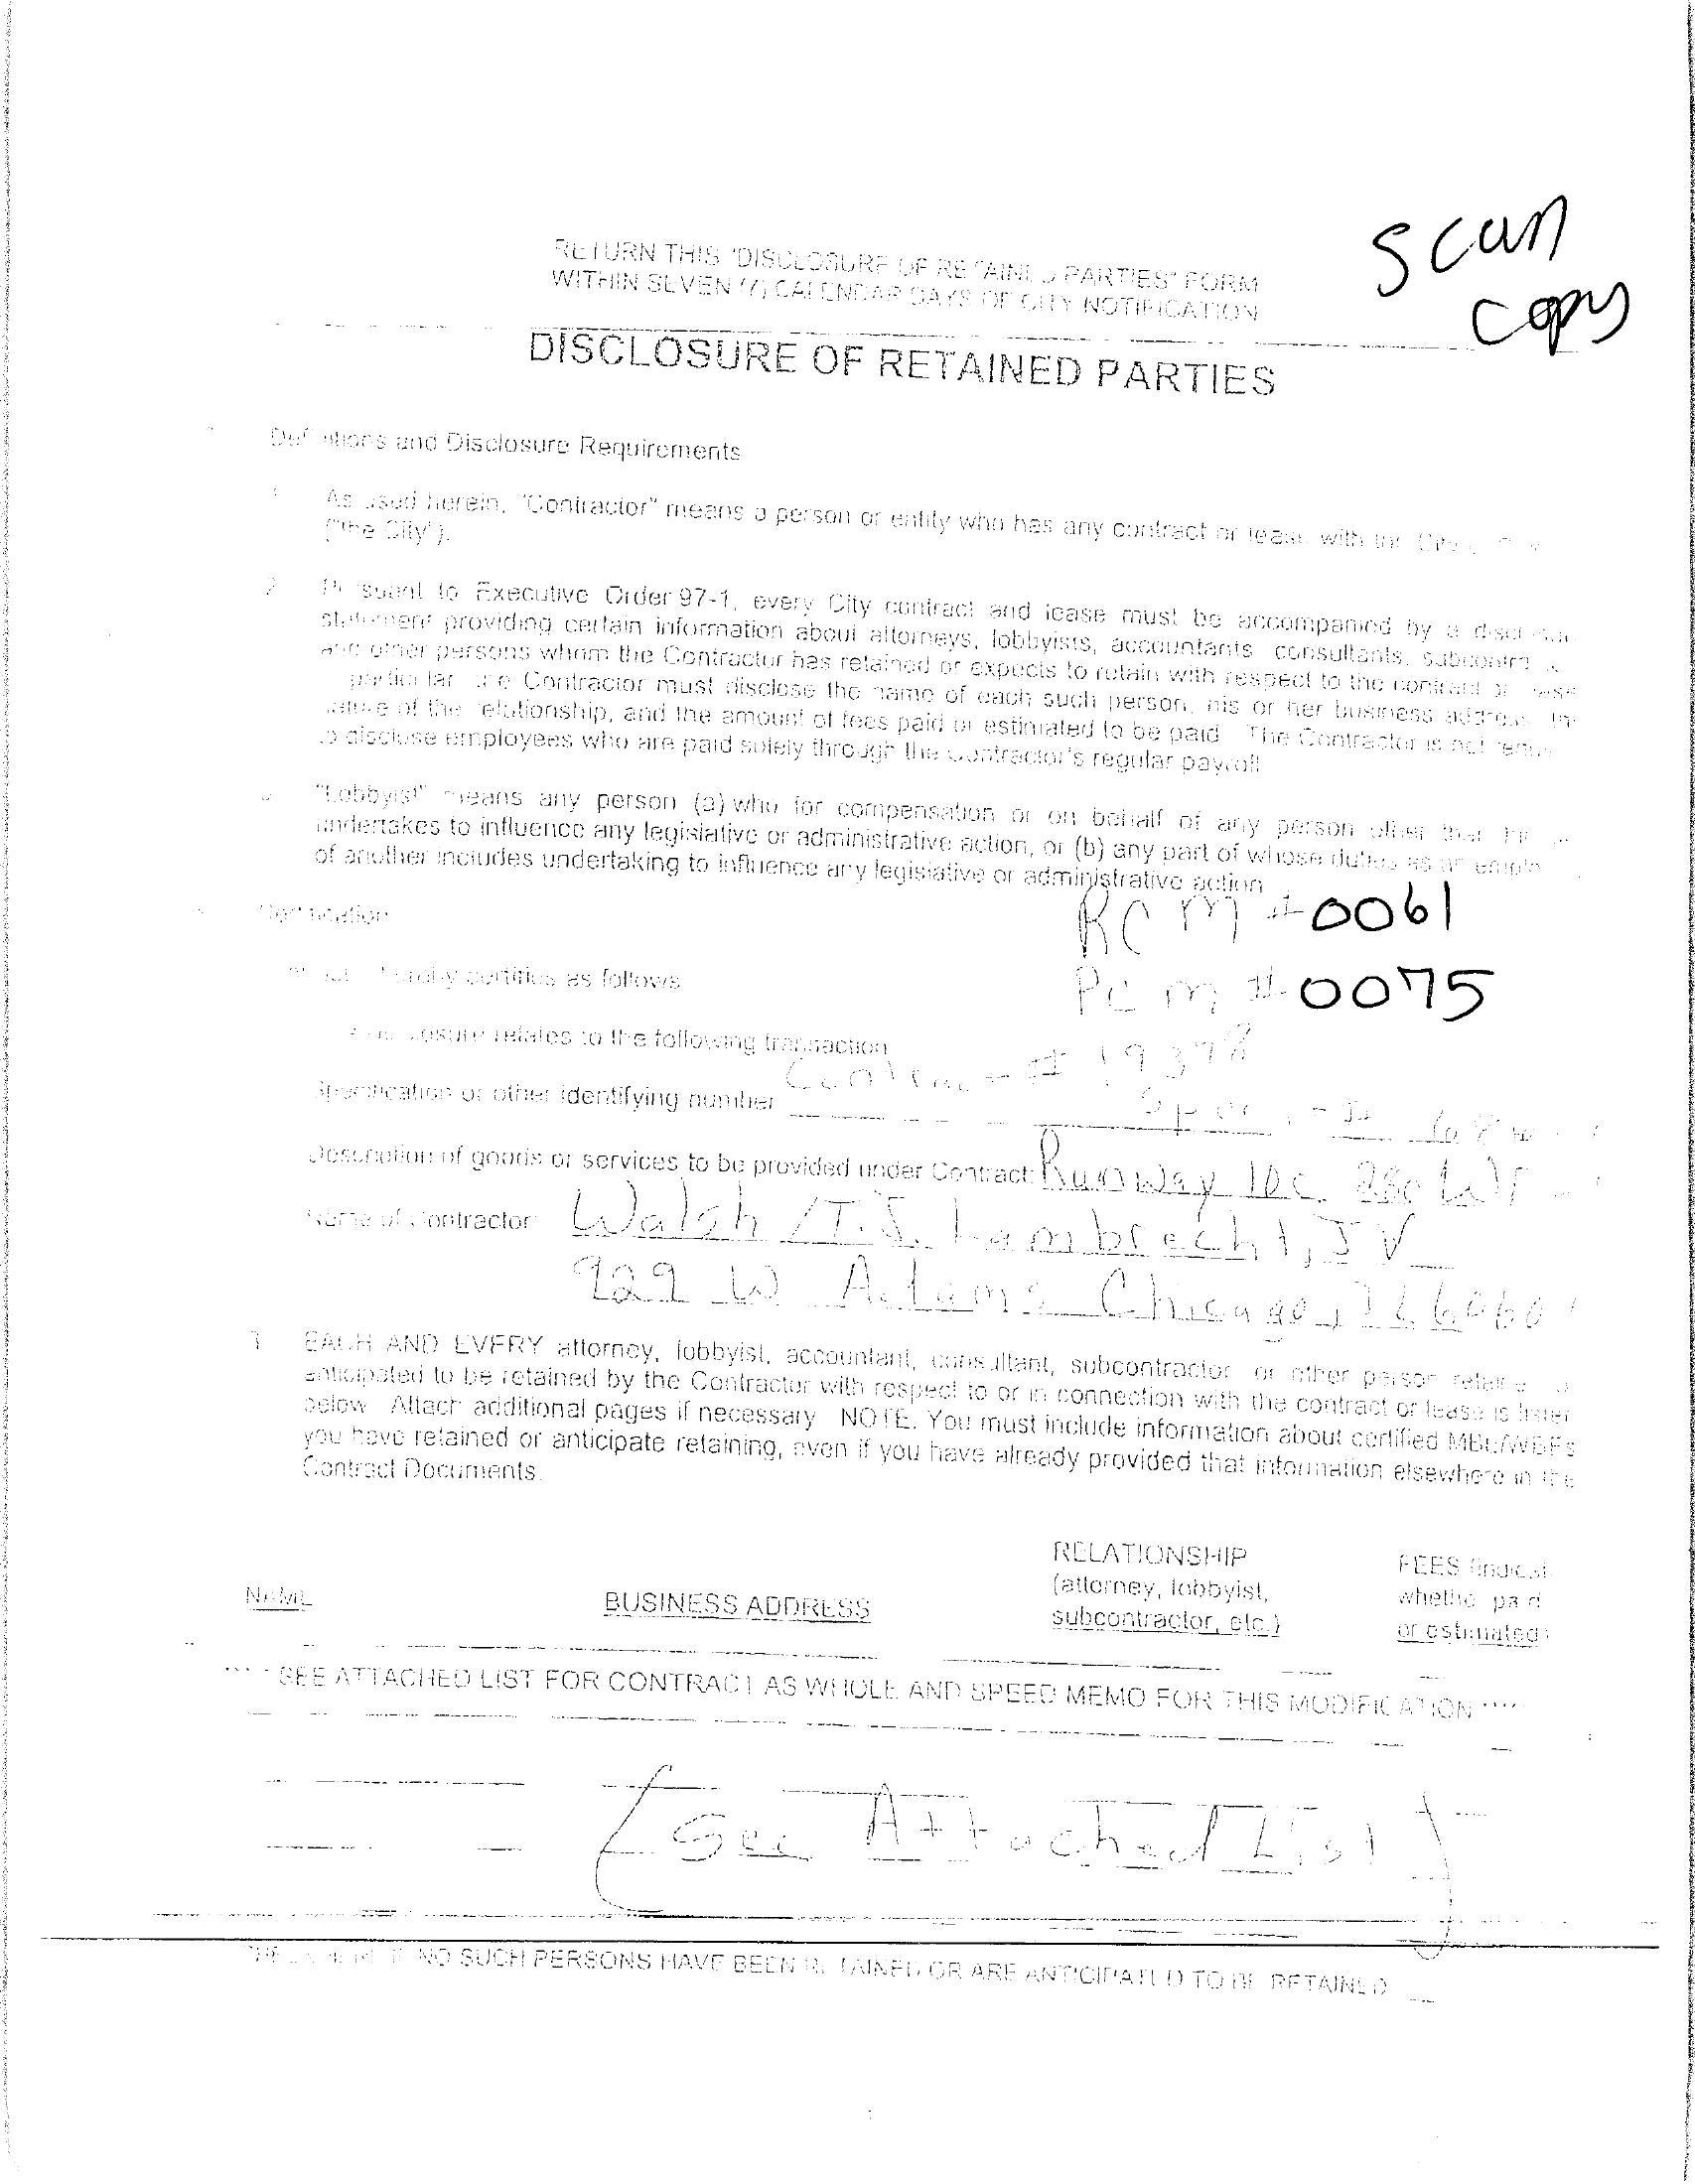 scan
copy
RETURN THIS "DISCLOSURE OF RETAINED PARTIES" FORM
WITHIN SEVEN (7) CALENDAR DAYS OF CITY NOTIFICATION
DISCLOSURE OF RETAINED PARTIES
Definitions and Disclosure Requirements
1 As used herein, "Contractor" means a person or entity who has any contract or lease with the
("the City").
2 Pursuant to Executive Order 97-1, every City contract and lease must be accompanied by a
statement providing certain information about attorneys, lobbyists, accountants consultants,
and other persons whom the Contractor has retained or expects to retain with respect to the contract or
Contractor must disclose the name of each such person, his or her business address
of the relationship, and the amount of fees paid or estimated to be paid The Contractor is not
to disclose employees who are paid solely through the Contractor's regular payroll
"Lobbyist" means any person (a) who for compensation or on behalf of any person other than
undertakes to influence any legislative or administrative action, or (b) any part of whose duties as
of another includes undertaking to influence any legislative or administrative action
RCM #0061
Certification
PCM #0075
certifies as follows
relates to the following transaction
Specification or other identifying number
Description of goods or services to be provided under Contract: Runway 10c 28c
Name of Contractor Walsh / T.J. Lambrecht, JV
929 W Adams Chicago, IL 60607
EACH AND EVERY attorney, lobbyist, accountant, consultant, subcontractor or other person
anticipated to be retained by the Contractor with respect to or in connection with the contract or lease is
below Attach additional pages if necessary NOTE. You must include information about certified MBE/WBEs
you have retained or anticipate retaining, even if you have already provided that information elsewhere in the
Contract Documents.
NAME BUSINESS ADDRESS RELATIONSHIP
(attorney, lobbyist,
subcontractor, etc.) FEES
whether paid
or estimated)
SEE ATTACHED LIST FOR CONTRACT AS WHOLE AND SPEED MEMO FOR THIS MODIFICATION
See Attached List
NO SUCH PERSONS HAVE BEEN RETAINED OR ARE ANTICIPATED TO BE RETAINED